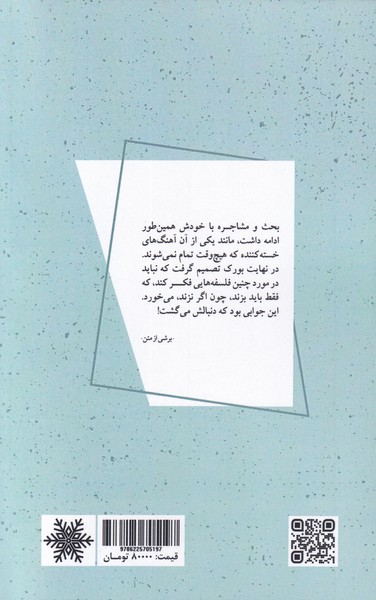 بحث و مشاجره با خودش همین‌طور
ادامه داشت، مانند یکی از آن آهنگ‌های
خسته‌کننده که هیچ‌وقت تمام نمی‌شوند.
در نهایت بورک تصمیم گرفت که نباید
در مورد چنین فلسفه‌هایی فکر کند، که
فقط باید بزند، چون اگر نزند، می‌خورد.
این جوابی بود که دنبالش می‌گشت!
·برشی از متن·
9786225705197
قیمت: ۸۰۰۰۰ تومان